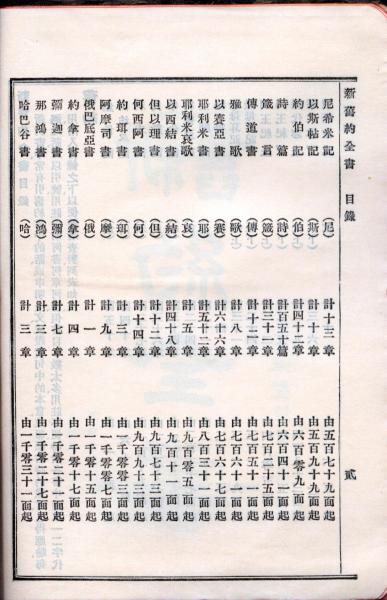 新舊約全書 目錄 貳
尼希米記 (尼) 計十三章 由五百七十九面起
以斯帖記 (斯) 計十章 由五百九十九面起
約伯記 (伯) 計四十二章 由六百零九面起
詩篇 (詩) 計百五十篇 由六百四十一面起
箴言 (箴) 計三十一章 由七百二十五面起
傳道書 (傳) 計十二章 由七百五十一面起
雅歌 (歌) 計八章 由七百六十一面起
以賽亞書 (賽) 計六十六章 由七百六十七面起
耶利米書 (耶) 計五十二章 由八百三十一面起
耶利米哀歌 (哀) 計五章 由九百零五面起
以西結書 (結) 計四十八章 由九百十一面起
但以理書 (但) 計十二章 由九百七十三面起
何西阿書 (何) 計十四章 由九百九十三面起
約珥書 (珥) 計三章 由一千零零三面起
阿摩司書 (摩) 計九章 由一千零零七面起
俄巴底亞書 (俄) 計一章 由一千零十五面起
約拿書 (拿) 計四章 由一千零十七面起
彌迦書 (彌) 計七章 由一千零二十一面起
那鴻書 (鴻) 計三章 由一千零二十七面起
哈巴谷書 (哈) 計三章 由一千零三十一面起